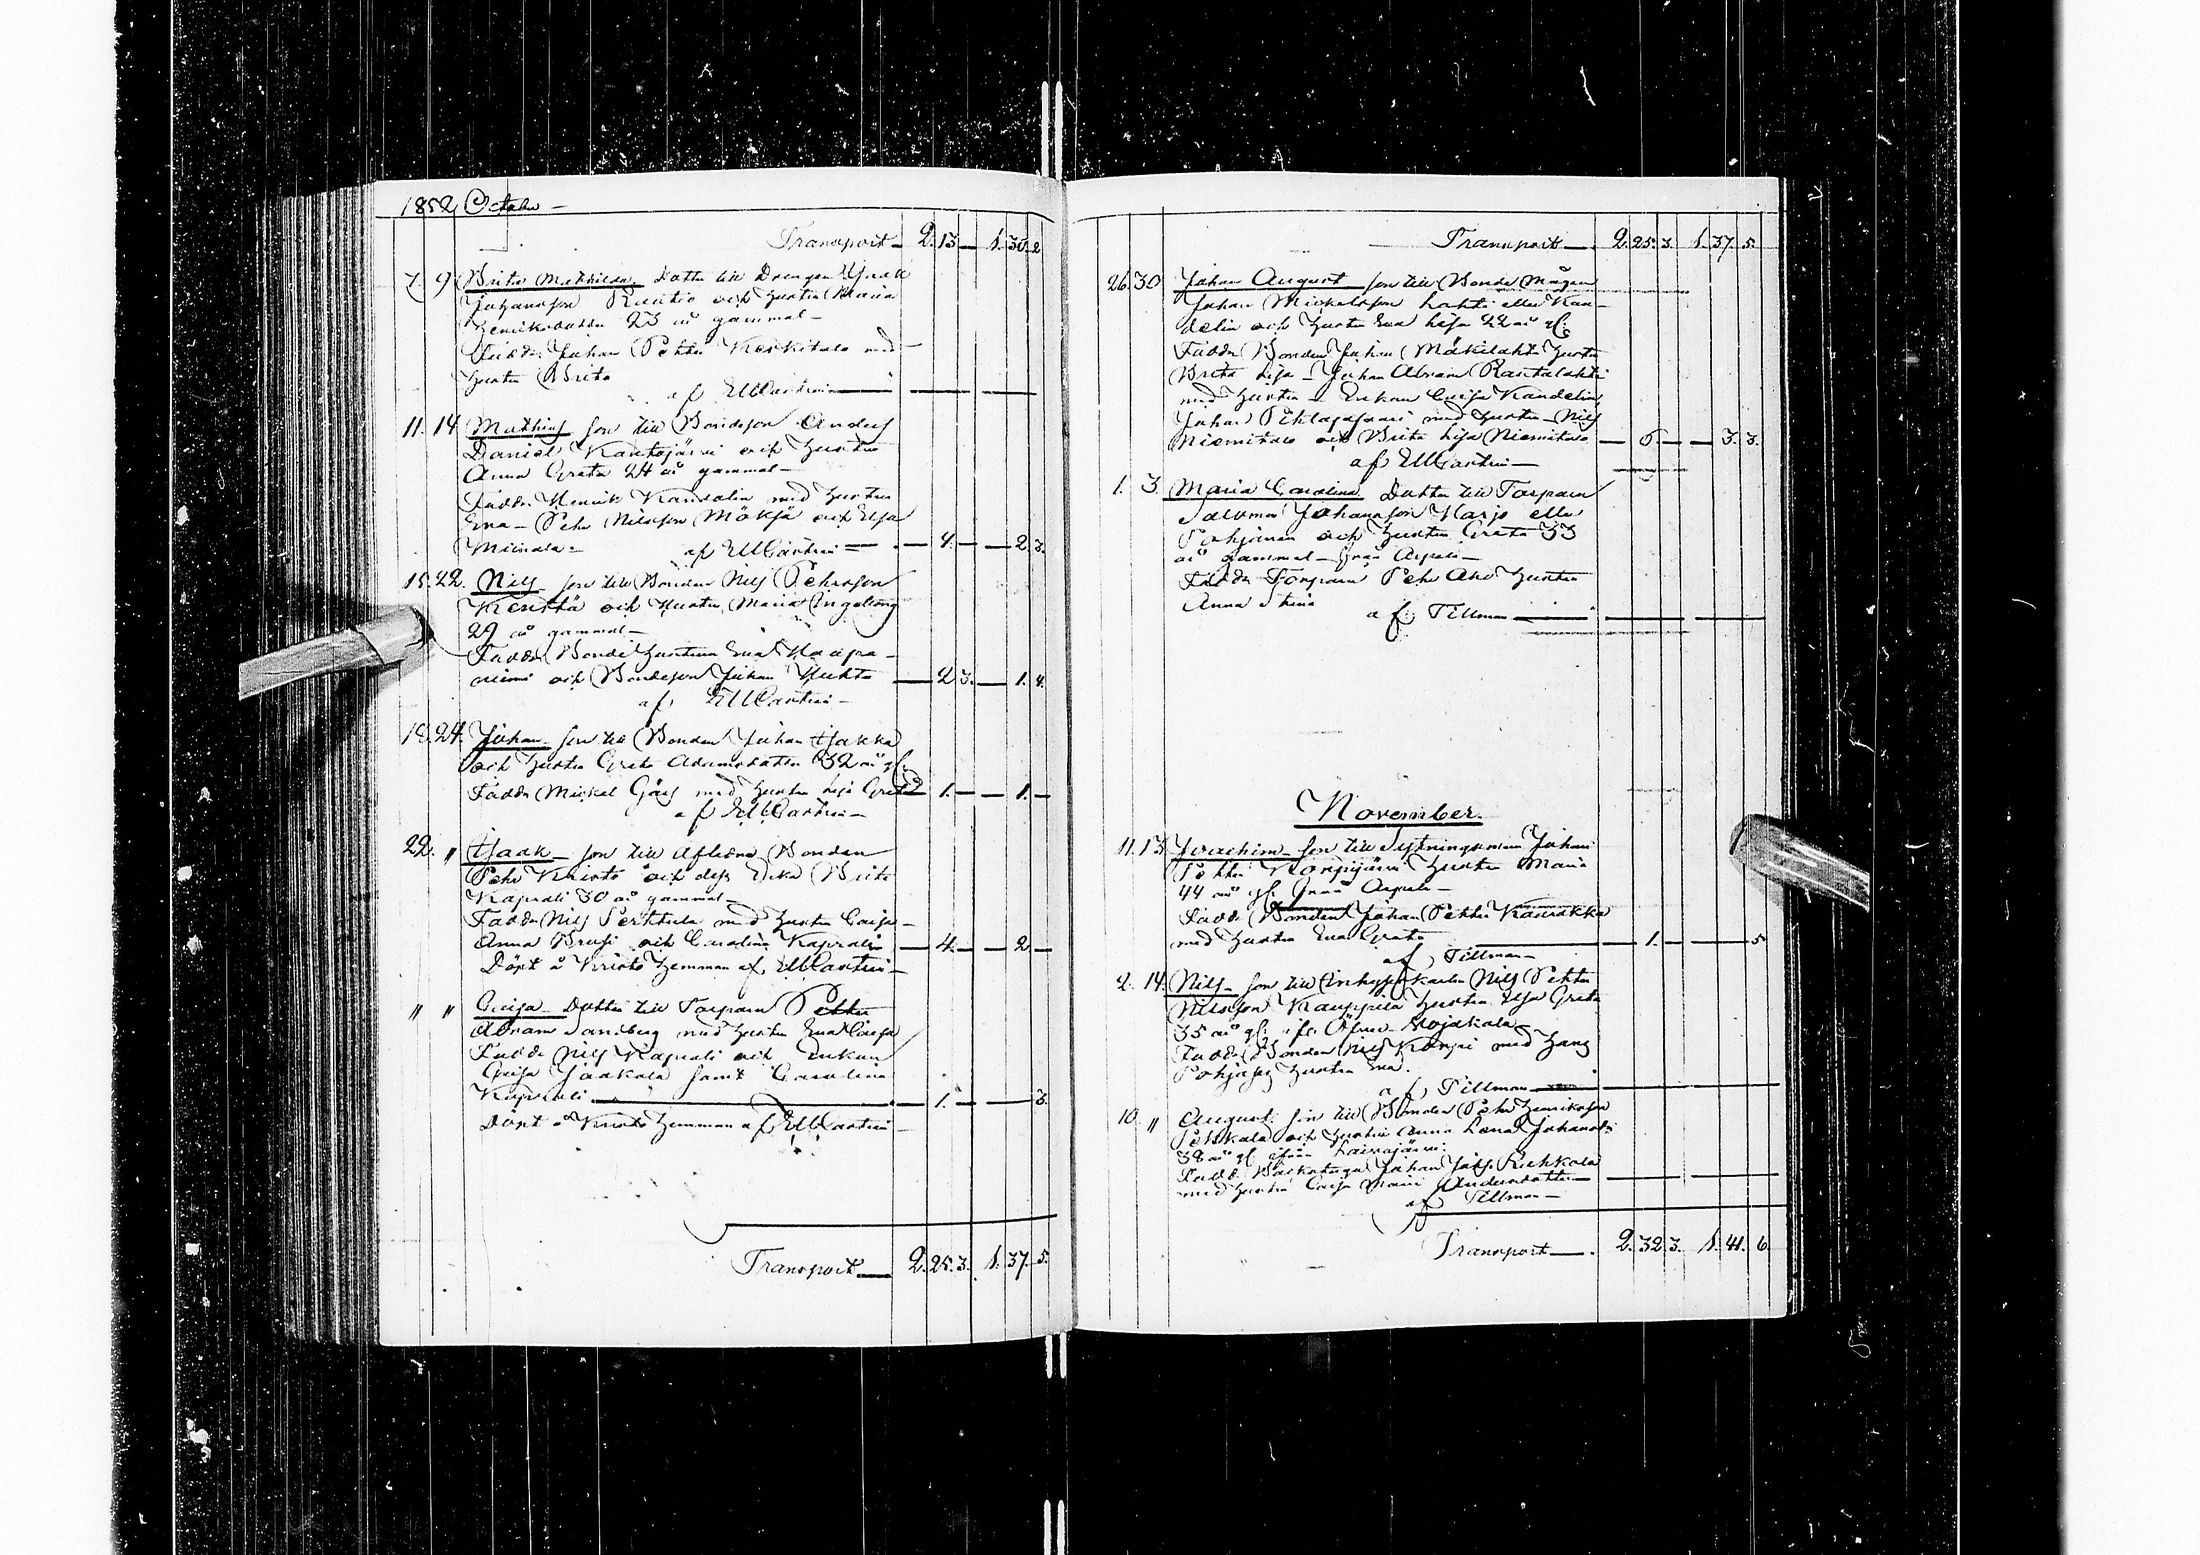 1852 October
Transport 2. 13 — 1. 35. 2
7. 9 Brita Mathilda Dotter till Drengen Isaak
Johansson Ruikka och hustru Maria
Henriksdotter 23 år gammal
Faddr. Johan Petter Keskitalo med
hustru Brita
af EMCastrén
11. 14 Mathias son till Bondeson Anders
Daniel Kantojärvi och hustru
Anna Greta 24 år gammal
Faddr. Henrik Kandelin med hustru
Eva — Pehr Nilsson Mökjä och Elsa
af EMCastrén — 4. — — 2. 3.
15. 22. Nils son till Bonden Nils Pehrsson
Kenttä och Hustru Maria Ingeborg
29 år gammal
Faddr. Bonde hustrun Eva Haapa-
niemi och Bondeson Johan Huhta — 2 3. — 1. 4.
af EMCastrén
18. 24. Johan son till Bonden Johan
och hustru Greta Adamsdotter 32 år gl.
Faddr. Mickel Gäis med hustru Lisa Greta 1. — — 1. —
af EMCastrén
22. " Isaak son till aflidne Bonden
Pehr Kristo och dess Enka Brita
Kaprali 30 år gammal
Faddr. Nils Perttula med hustru Caisa
Anna Brusi och Carolina Kaprali — 4. — — 2 —
Döpt å Kristo hemman af EMCastrén
" " Caisa Dotter till Torparn Petter
Abram Sandberg med hustru Eva Caisa
Faddr. Nils Kaprali och Enkan
Caisa Jaakola samt Carolina
Kaprali — 1. — — 3.
Döpt å Kristo hemman af EMCastrén
Transport 2. 25. 3. 1. 37. 5.
Transport 2. 25. 3. 1. 37. 5.
26. 30 Johan August son till Bonde Mågen
Johan Mickelsson Lahti eller Kan-
delin och hustru Eva Lisa 22 år gl.
Faddr. Bonden Johan Mäkilahti hustru
Brita Lisa — Johan Abram Rantalahti
med hustru — Enkan Caisa Kandelin
Johan Pihlajasaari med hustru — Nils
Niemitalo och Brita Lisa Niemitalo — 6. — — 3. 3.
af EMCastrén
1. 3. Maria Carolina Dotter till Torparn
Salomon Johansson Harjo eller
Pohjanen och hustru Greta 33
år gammal — från Arpela
Faddr. Torparn Pehr Aho hustru
Anna Stina
af Tillman
November.
11. 13 Joachim son till Sytningsman Johan
Petter Korpijärvi hustru Maria
44 år gl. från Arpela
Faddr. Bonden Johan Petter Kaurakka
med hustru Eva Greta — 1. — 5
af Tillman
2. 14. Nils son till Inhyses karln Nils Petter
Nilsson Kauppila hustru Elsa Greta
35 år gl. ifr. Öfver Vojakala
Faddr. Bonden Nils Korpi med Hans
Pohjas hustru Eva.
af Tillman
10. " August son till Bonden Pehr Henriksson
och hustru Anna Lena Johansd:r
38 år gl. ifrån Laivajärvi
Faddr. Johan Ruhkala
med hustru Caisa Maria Andersdotter
af Tillman
Transport 2. 32 3. 1. 41. 6.